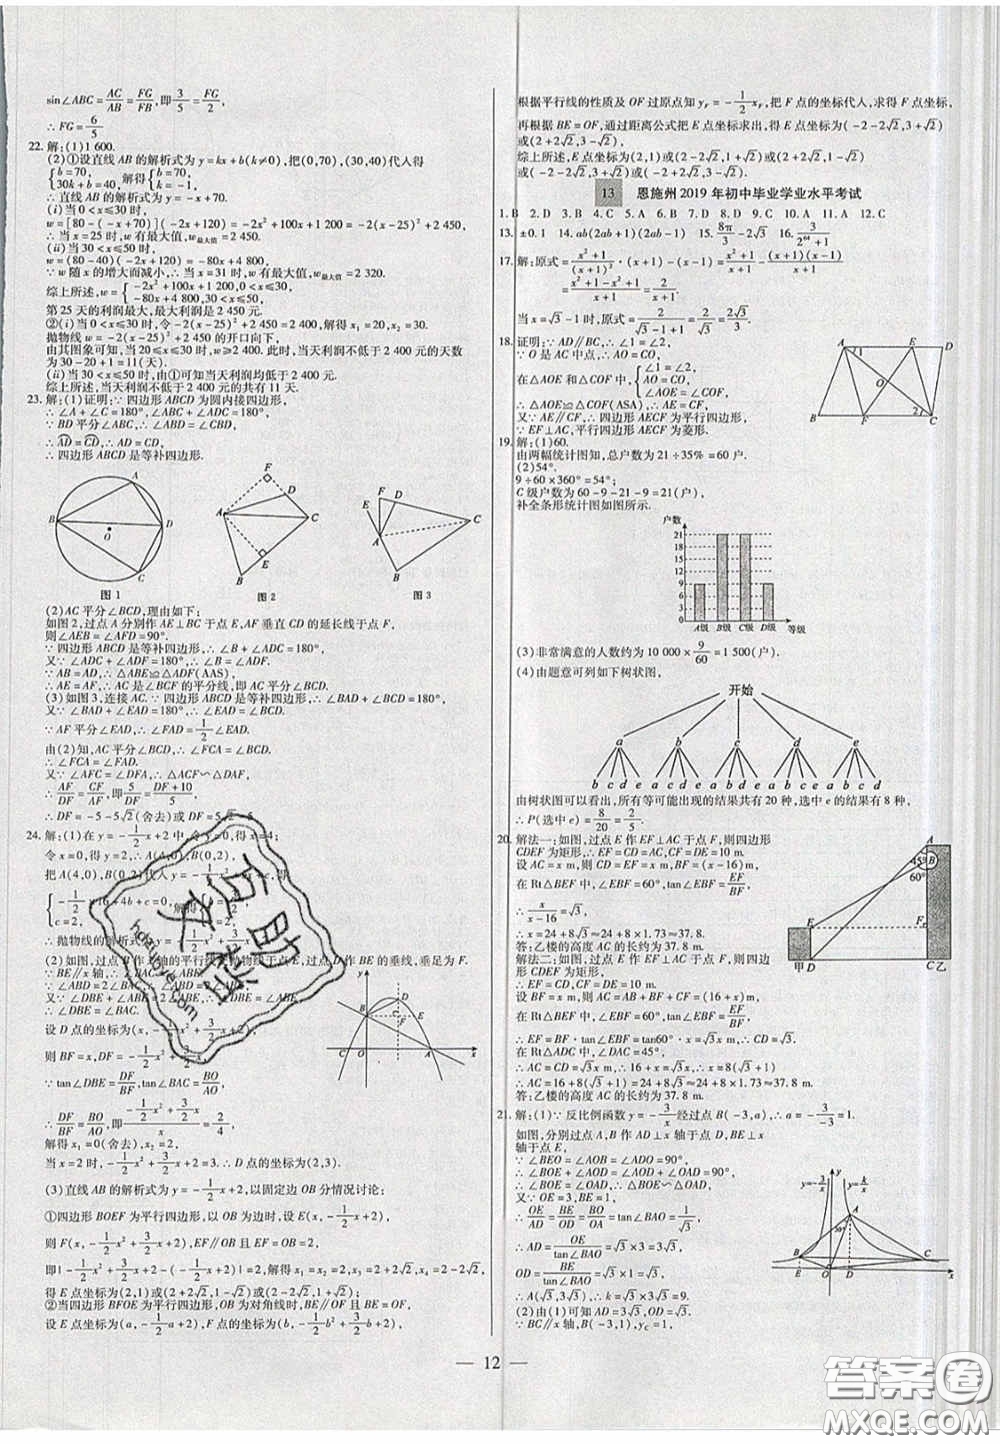 sin∠ABC = AC/AB = FG/FB, 即 3/5 = FG/2,
∴ FG = 6/5
22. 解: (1) 1 600.
(2) ①设直线 AB 的解析式为 y = kx + b(k≠0), 把(0,70), (30,40)代入得
{ b = 70, 30k + b = 40, 解得 { b = 70, k = -1.
∴ 直线 AB 的解析式为 y = -x + 70.
(i) 当 0 < x ≤ 30 时,
w = [80 - (-x + 70)](-2x + 120) = -2x² + 100x + 1 200 = -2(x - 25)² + 2 450,
∴ 当 x = 25 时, w 有最大值, w最大值 = 2 450.
(ii) 当 30 < x ≤ 50 时,
w = (80 - 40)(-2x + 120) = -80x + 4 800,
∵ w 随 x 的增大而减小, ∴ 当 x = 31 时, w 有最大值 = 2 320.
综上所述, w = { -2x² + 100x + 1 200, -80x + 4 800,
第 25 天的利润最大, 最大利润是 2 450 元.
②(i) 当 0 < x ≤ 30 时, 令 -2(x - 25)² + 2 450 = 2 400, 解得 x₁ = 20, x₂ = 30,
抛物线 w = -2(x - 25)² + 2 450 的开口向下,
由其图象可知, 当 20 ≤ x ≤ 30 时, w ≥ 2 400. 此时, 当天利润不低于 2 400 元的天数
为 30 - 20 + 1 = 11(天).
(ii) 当 30 < x ≤ 50 时, 由①可知当天利润均低于 2 400 元.
综上所述, 当天利润不低于 2 400 元的共有 11 天.
23. 解: (1)证明: ∵ 四边形 ABCD 为圆内接四边形,
∴ ∠A + ∠C = 180°, ∠ABC + ∠ADC = 180°.
∵ BD 平分∠ABC, ∴ ∠ABD = ∠CBD,
∴ AD = CD, ∴ AD = CD,
∴ 四边形 ABCD 是等补四边形.
图 1 图 2 图 3
(2) AC 平分∠BCD, 理由如下:
如图 2, 过点 A 分别作 AE⊥BC 于点 E, AF 垂直 CD 的延长线于点 F,
则∠AEB = ∠AFD = 90°.
∵ 四边形 ABCD 是等补四边形, ∴ ∠B + ∠ADC = 180°.
又∵ ∠ADC + ∠ADF = 180°, ∴ ∠B = ∠ADF.
∵ AB = AD, ∴ △ABE≌△ADF(AAS),
∴ AE = AF, ∴ AC 是∠BCF 的平分线, 即 AC 平分∠BCD.
(3) 如图 3, 连接 AC. ∵ 四边形 ABCD 是等补四边形, ∴ ∠BAD + ∠BCD = 180°,
又∵ ∠BAD + ∠EAD = 180°, ∴ ∠EAD = ∠BCD.
∵ AF 平分∠EAD, ∴ ∠FAD = 1/2∠EAD.
由(2)知, AC 平分∠BCD, ∴ ∠FCA = ∠BCD.
∴ ∠FCA = ∠FAD.
又∵ ∠AFC = ∠DFA, ∴ △ACF∽△DAF,
∴ AF/DF = CF/AF, 即 5/DF = (DF + 10)/5,
∴ DF = -5 - 5√2(舍去)或 DF = 5√2 - 5
24. 解: (1)在 y = -1/2x + 2 中, 令 y = 0, 得 x = 4;
令 x = 0, 得 y = 2, ∴ A(4,0), B(0,2),
把 A(4,0), B(0,2)代入 y =
∴ 抛物线的解析式为 y = -1/2x² + 3/2x + 2.
∵ BE∥x 轴, ∴ ∠BAC = ∠ABE.
∵ ∠ABD = 2∠BAC, ∴ ∠ABD = 2∠ABE.
又∵ ∠DBE + ∠ABE = 2∠ABE,
∴ ∠DBE = ∠ABE, ∴ ∠DBE = ∠BAC.
设 D 点的坐标为(x, -1/2x² + 3/2x + 2),
则 BF = x, DF = -1/2x² + 3/2x.
∵ tan∠DBE = DF/BF, tan∠BAC = BO/AO,
∴ DF/BF = BO/AO, 即 (-1/2x² + 3/2x)/x = 2/4,
解得 x₁ = 0(舍去), x₂ = 2.
当 x = 2 时, -1/2x² + 3/2x + 2 = 3. ∴ D 点的坐标为(2,3).
(3) 直线 AB 的解析式为 y = -1/2x + 2, 以固定边 OB 分情况讨论:
①四边形 BOEF 为平行四边形, 以 OB 为边时, 设 E(x, -1/2x + 2),
则 F(x, -1/2x² + 3/2x + 2), ∵ OB∥EF 且 EF = OB = 2,
即|-1/2x² + 3/2x + 2 - (-1/2x + 2)| = 2, 解得 x₁ = x₂ = 2, x₃ = 2 + 2√2, x₄ = 2 - 2√2,
得 E 点坐标为(2,1)或(2 + 2√2, 1 - √2)或(2 - 2√2, 1 + √2),
②当四边形 BFOE 为平行四边形, OB 为对角线时, BE∥OF 且 BE = OF,
设 E 点坐标为(a, -1/2a + 2), F 点的坐标为(b, -1/2b² + 3/2b + 2).
根据平行线的性质及 OF 过原点知 yF = -1/2xF, 把 F 点的坐标代入, 求得 F 点坐标,
再根据 BE = OF, 通过距离公式把 E 点坐标求出, 得 E 点坐标为(-2 - 2√2, 3 + √2)
或(2 + 2√2, 3 - √2).
综上所述, E 点坐标为(2,1)或(2 - 2√2, 1 + √2)或(2 + 2√2, 1 - √2)
或(-2 - 2√2, 3 + √2)或(-2 + 2√2, 3 - √2).
13 恩施州 2019 年初中毕业学业水平考试
1. B 2. D 3. B 4. C 5. C 6. D 7. B 8. D 9. C 10. A 11. A 12. D
13. ±0.1 14. ab(2ab + 1)(2ab - 1) 15. 8π/3 - 2√3 16. 3/(2⁶⁴ + 1)
17. 解: 原式 = (x² + 1)/(x + 1)² · (x + 1) - (x - 1) = (x² + 1)/(x + 1) - (x - 1)(x + 1)/(x + 1)
= (x² + 1 - x² + 1)/(x + 1) = 2/(x + 1).
当 x = √3 - 1 时, 原式 = 2/(√3 - 1 + 1) = 2/√3 = 2√3/3.
18. 证明: ∵ AD∥BC, ∴ ∠1 = ∠2,
∵ O 是 AC 中点, ∴ AO = CO,
在△AOE 和△COF 中, { ∠1 = ∠2, AO = CO, ∠AOE = ∠COF,
∴ △AOE≌△COF(ASA), ∴ AE = CF.
又∵ AE∥CF, ∴ 四边形 AECF 是平行四边形.
∵ EF⊥AC, 平行四边形 AECF 为菱形.
19. 解: (1) 60.
由两幅统计图知, 总户数为 21 ÷ 35% = 60(户).
(2) 54°.
9 ÷ 60 × 360° = 54°;
C 级户数为 60 - 9 - 21 - 9 = 21(户),
补全条形统计图如图所示.
户数
21
18
15
12
9
6
3
0
A级 B级 C级 D级 等级
(3) 非常满意的人数约为 10 000 × 9/60 = 1 500(户);
(4) 由题意可列如下树状图,
开始
a b c d e
b c d e a c d e a b d e a b c e a b c d
由树状图可以看出, 所有等可能出现的结果共有 20 种, 选中 e 的结果有 8 种,
∴ P(选中 e) = 8/20 = 2/5.
20. 解法一: 如图, 过点 E 作 EF⊥AC 于点 F, 则四边形
CDEF 为矩形, ∴ EF = CD, CF = DE = 10 m.
设 AC = x m, 则 CD = EF = AC = x m, BF = (x - 16) m.
在 Rt△EBF 中, ∠EBF = 60°, tan∠EBF = EF/BF,
∴ x/(x - 16) = √3,
∴ x = 24 + 8√3 ≈ 24 + 8 × 1.73 ≈ 37.8,
答: 乙楼的高度 AC 的长约为 37.8 m.
解法二: 如图, 过点 E 作 EF⊥AC 于点 F, 则四边
形 CDEF 为矩形,
∴ EF = CD, CF = DE = 10 m.
设 BF = x m, 则 AC = CD = EF = (16 + x) m,
在 Rt△EBF 中, ∠EBF = 60°, tan∠EBF = EF/BF,
∴ EF = BF · tan∠EBF = BF · tan60° = √3x m.
在 Rt△ADC 中, ∠ADC = 45°,
∴ AC = CD = EF = √3x m, ∴ 16 + x = √3x, ∴ x = 8(√3 + 1),
∴ AC = 16 + 8(√3 + 1) = 24 + 8√3 ≈ 24 + 8 × 1.73 ≈ 37.8 m.
答: 乙楼的高度 AC 的长约为 37.8 m.
21. 解: (1) ∵ 反比例函数 y = -3/x 经过点 B(-3, a), ∴ a = -3/-3 = 1.
如图, 分别过点 A, B 作 AD⊥x 轴于点 D, BE⊥x
轴于点 E,
∵ ∠BEO = ∠AOB = ∠ADO = 90°,
∴ ∠BOE + ∠AOD = ∠AOD + ∠OAD = 90°,
∴ ∠BOE = ∠OAD, ∴ △BOE∽△OAD.
又∵ OE = 3, BE = 1,
∴ OE/AD = BE/OD = BO/OA = tan∠BAO = 1/√3,
∴ AD = OE/tan∠BAO = √3 × 3 = 3√3,
OD = BE/tan∠BAO = √3 × 1 = √3,
∴ A(√3, 3√3), ∴ k = √3 × 3√3 = 9.
(2) 由(1)可知 AD = 3√3,
∵ BC∥x 轴, B(-3, 1), yC = 1,
12
答案圈
MXQE.COM